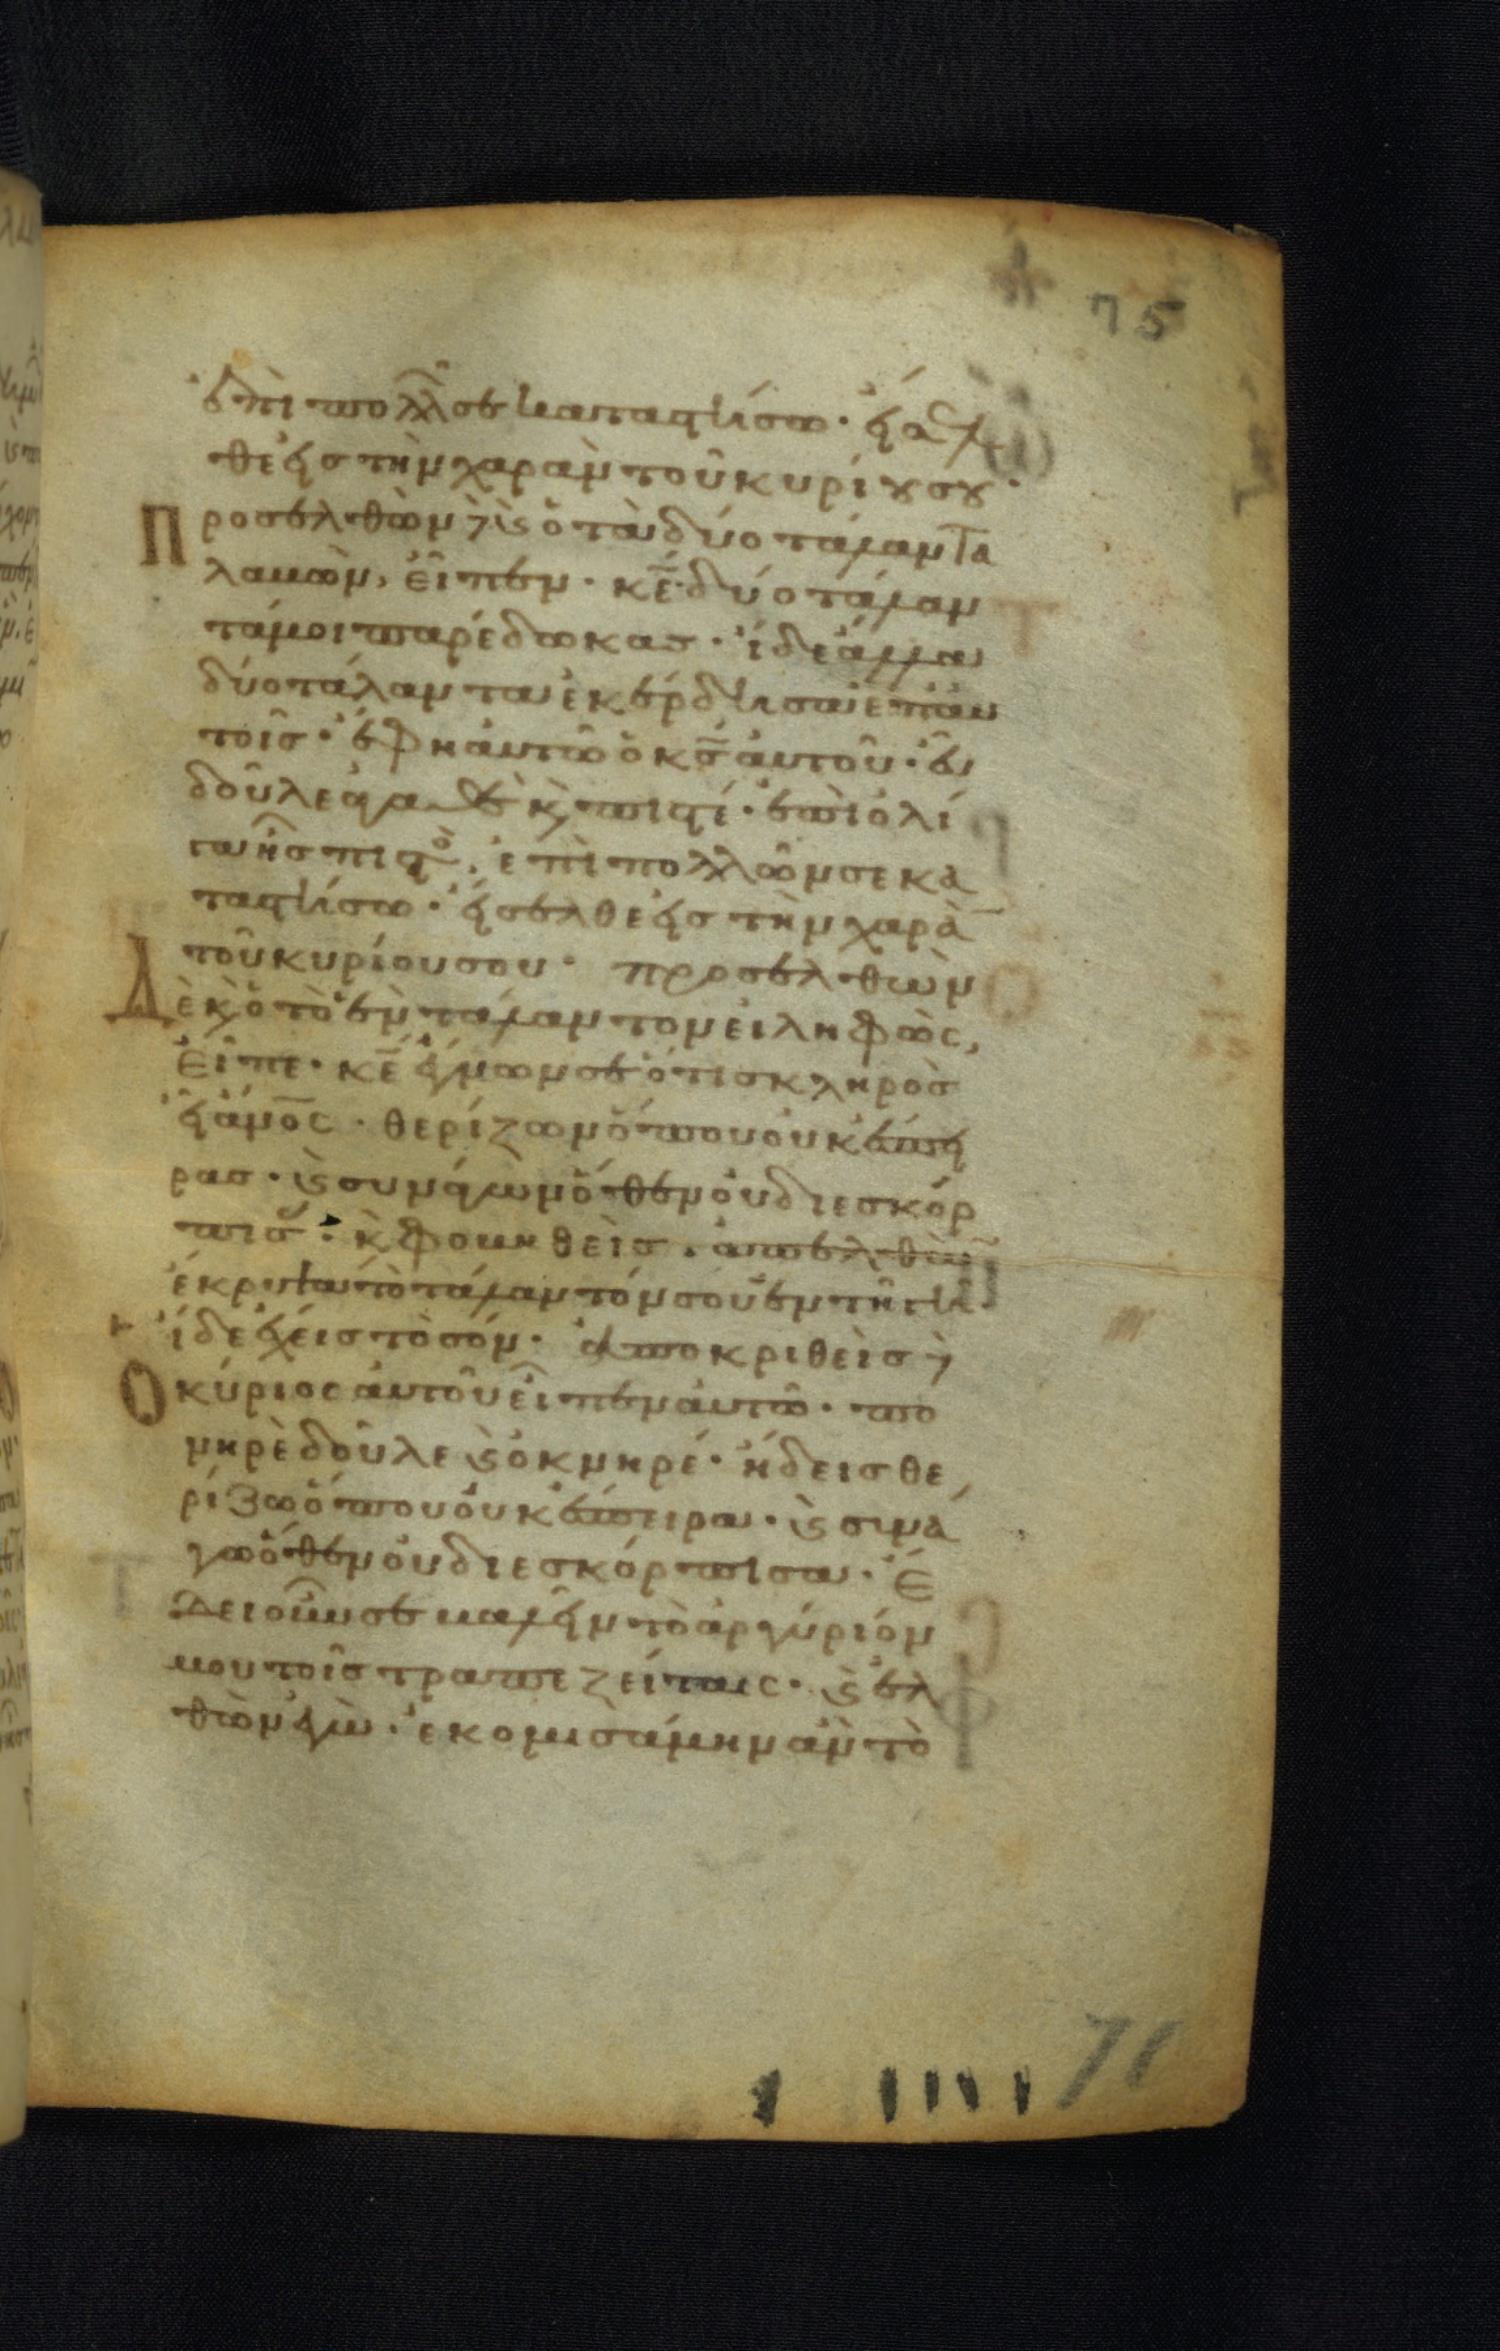 75
ἐπὶ πολλῶν σε καταστήσω· εἴσελ
θε εἰς τὴν χαρὰν τοῦ κυρίου σου·
Προσελθὼν δὲ καὶ ὁ τὰ δύο τάλαντα
λαβὼν, εἶπεν· κ̅ε̅ δύο τάλαν
τά μοι παρέδωκας· ἴδε ἄλλα
δύο τάλαντα ἐκέρδησα ἐπ' αὐ
τοῖς· ἔφη αὐτῶ ὁ κ̅ς̅ αὐτοῦ· εὖ
δοῦλε ἀγαθὲ κ πιστέ· ἐπὶ ὀλί
γα ἦς πιστὸς, ἐπὶ πολλῶν σε κα
ταστήσω· εἴσελθε εἰς τὴν χαρὰν
τοῦ κυρίου σου· προσελθὼν
Δὲ κ ὁ τὸ ἓν τάλαντον εἰληφὼς,
εἶπε· κ̅ε̅ ἔγνων σε ὅτι σκληρὸς
εἶ ἄν̅ο̅ς̅· θερίζων ὅπου οὐκ ἔσπει
ρας· καὶ συνάγων ὅθεν οὐ διεσκόρ
πισας· κ φοβηθεὶς· ἀπελθὼν
ἔκρυψα τὸ τάλαντόν σου ἐν τῆ γῆ·
ἴδε ἔχεις τὸ σόν· ἀποκριθεὶς δὲ
Ὁ κύριος αὐτοῦ εἶπεν αὐτῶ· πο
νηρὲ δοῦλε καὶ ὀκνηρέ· ἤδεις θε
ρίζω ὅπου οὐκ ἔσπειρα· καὶ σινά
γω ὅθεν οὐ διεσκόρπισα· Ἔ
δει οὖν σε βαλεῖν τὸ ἀργύριόν
μου τοῖς τραπεζείταις· καὶ ἐλ
θὼν ἐγὼ· ἐκομισάμην ἂν τὸ
71